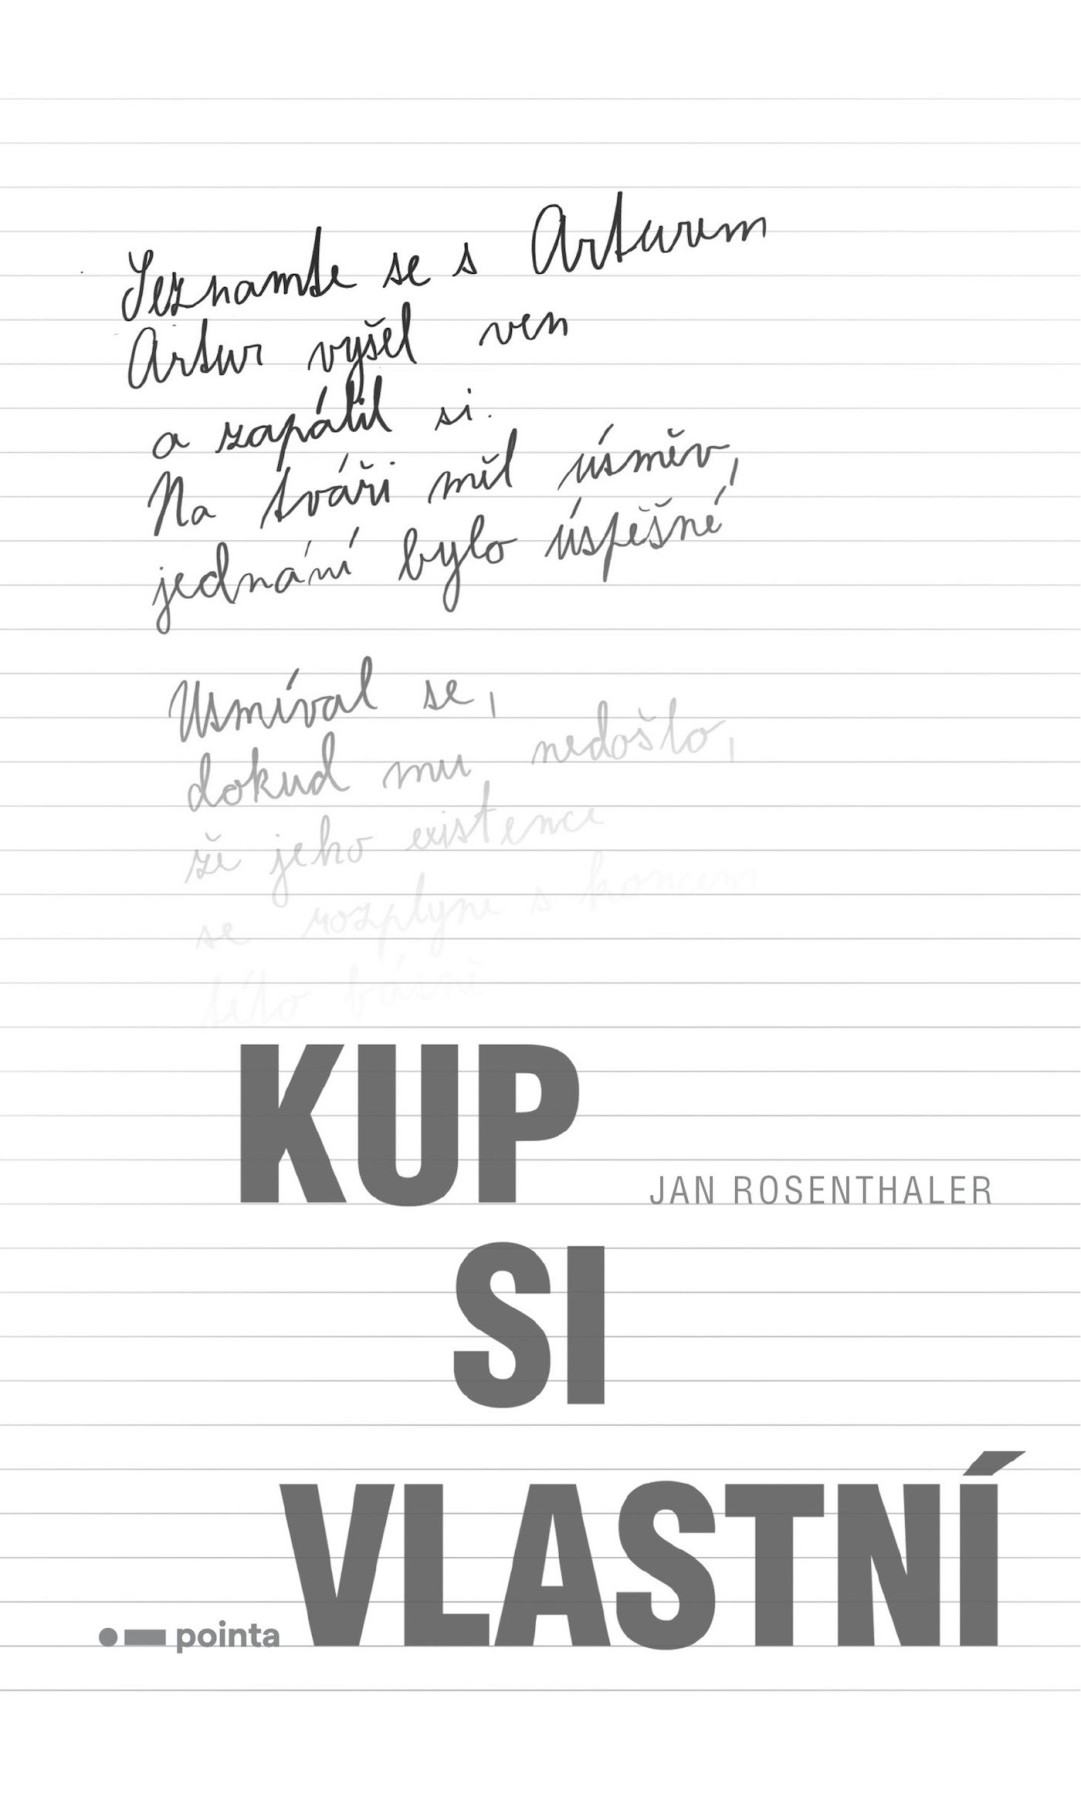 Seznamte se s Arturem
Artur vyšel ven
a zapálil si.
Na tváři měl úsměv,
jednání bylo úspěšné
Usmíval se,
dokud mu nedošlo,
že jeho existence
se rozplyne s koncem
této básně
KUP
JAN ROSENTHALER
SI
VLASTNÍ
pointa